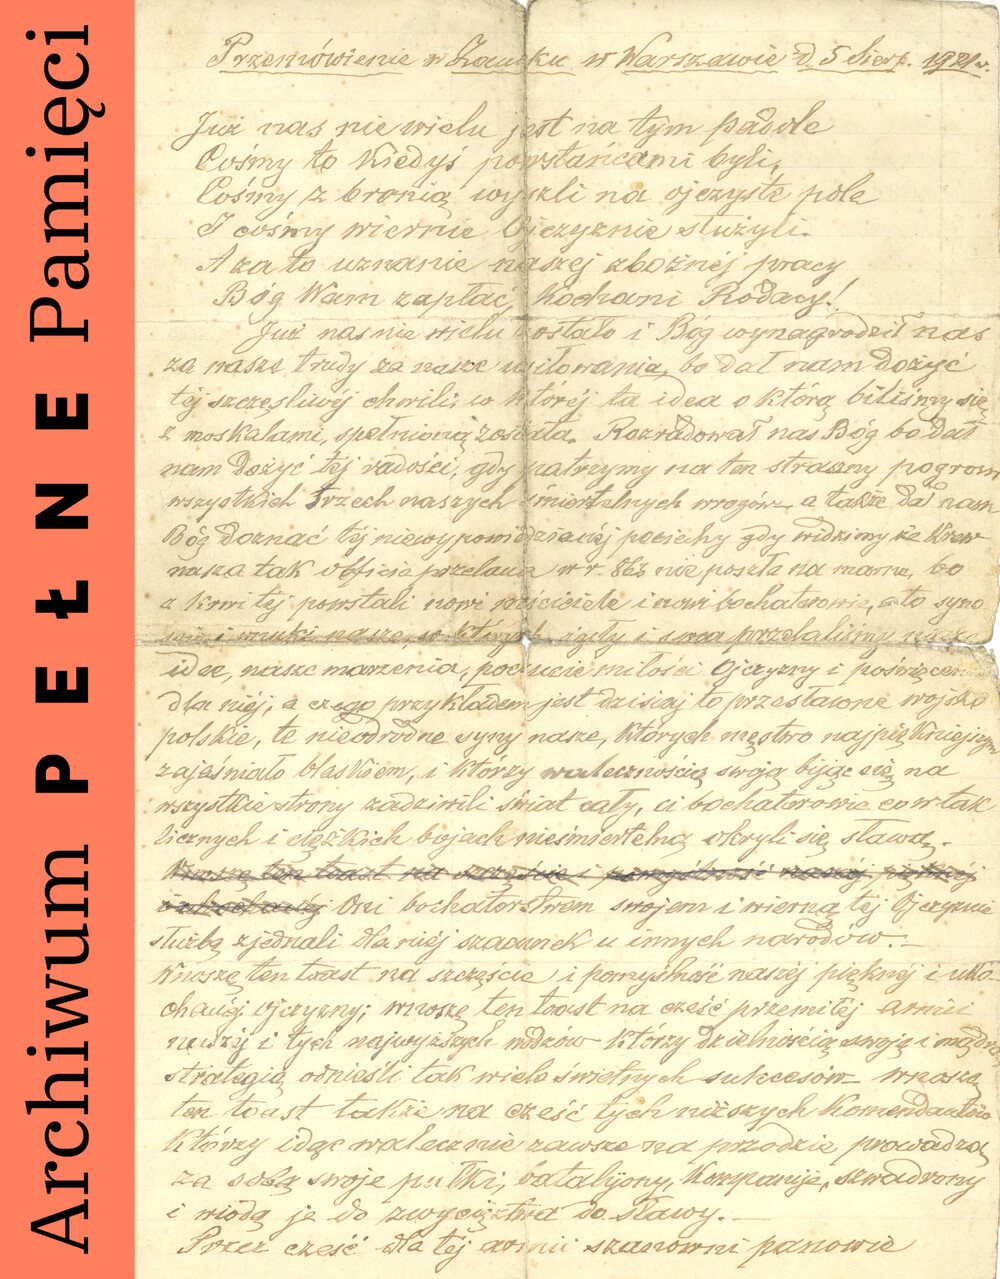 Archiwum PEŁNE Pamięci
Przemówienie w Zamku w Warszawie d. 5 Sierp. 1921 r.
Już nas nie wielu jest na tym padole
Cośmy to kiedyś powstańcami byli,
Cośmy z bronią wyszli na ojczyste pole
I cośmy wiernie Ojczyznie służyli.
A za to uznanie naszej zbożnej pracy
Bóg Wam zapłać, kochani Rodacy!
Już nas nie wielu ostało i Bóg wynagrodził nas
za nasze trudy za nasze miłowania, bo dał nam dożyć
tej szczęśliwej chwili, w której ta idea o którą biliśmy się
z moskalami, spełnioną została. Rozradował nas Bóg bo dał
nam dożyć tej radości, gdy patrzymy na ten straszny pogrom
wszystkich trzech naszych śmiertelnych wrogów a także dał nam
Bóg doznać tej niewypowiedzianej pociechy gdy widzimy że krew
nasza tak obficie przelana w r. 863 nie poszła na marne, bo
z krwi tej powstali nowi mściciele i nowi bochaterowie, a to syno
wie i wnuki nasze, w których żyły i serca przelaliśmy nasze
idee, nasze marzenia, poczucie miłości Ojczyzny i poświęcenia
dla niej, a czego przykładem jest dzisiaj to przesławne wojsko
polskie, te nieodrodne syny nasze, których męstwo najpiękniejszym
zajaśniało blaskiem, i którzy walecznością swoją bijąc się na
wszystkie strony zadziwili świat cały, ci bochaterowie co w tak
licznych i ciężkich bojach nieśmiertelną okryli się sławą.
Wnoszę ten toast na szczęście i pomyślność naszej pięknej
i ukochanej Oni bochaterstwem swojem i wierną tej Ojczyznie
służbą zjednali dla niej szacunek u innych narodów.
Wnoszę ten toast na szczęście i pomyślność naszej pięknej i uko
chanej ojczyzny; wnoszę ten toast na cześć przemiłej armii
naszej i tych najwyższych wodzów którzy dzielnością swoją i mądrą
strategią odnieśli tak wiele świetnych sukcesów wnoszę
ten toast także na cześć tych niższych komendantów
którzy idąc walecznie zawsze na przodzie prowadzą
za sobą swoje pułki, batalijony, kompanije, szwadrony
i wiodą je do zwycięztwa do sławy.
Przez cześć dla tej armii szanowni panowie